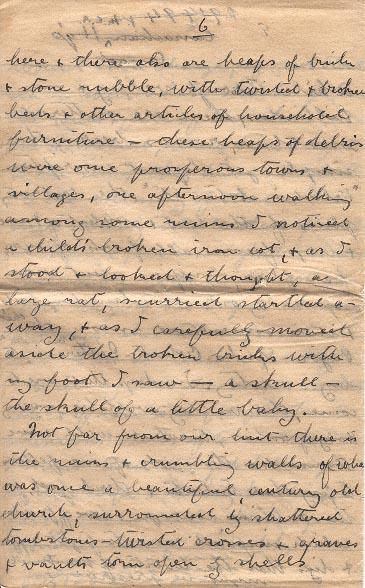 6
here & there also are heaps of brick
& stone rubble, with twisted & broken
beds & other articles of household
furniture — these heaps of debris
were once prosperous towns &
villages, one afternoon walking
among some ruins I noticed
a child's broken iron cot, & as I
stood & looked & thought, a
large rat, scurried startled a-
way, & as I carefully moved
aside the broken bricks with
my foot I saw — a skull —
the skull of a little baby.
Not far from our hut there is
the ruins & crumbling walls of what
was once a beautiful, century old
church, surrounded by shattered
tombstones - twisted crosses & graves
& vaults torn open by shells